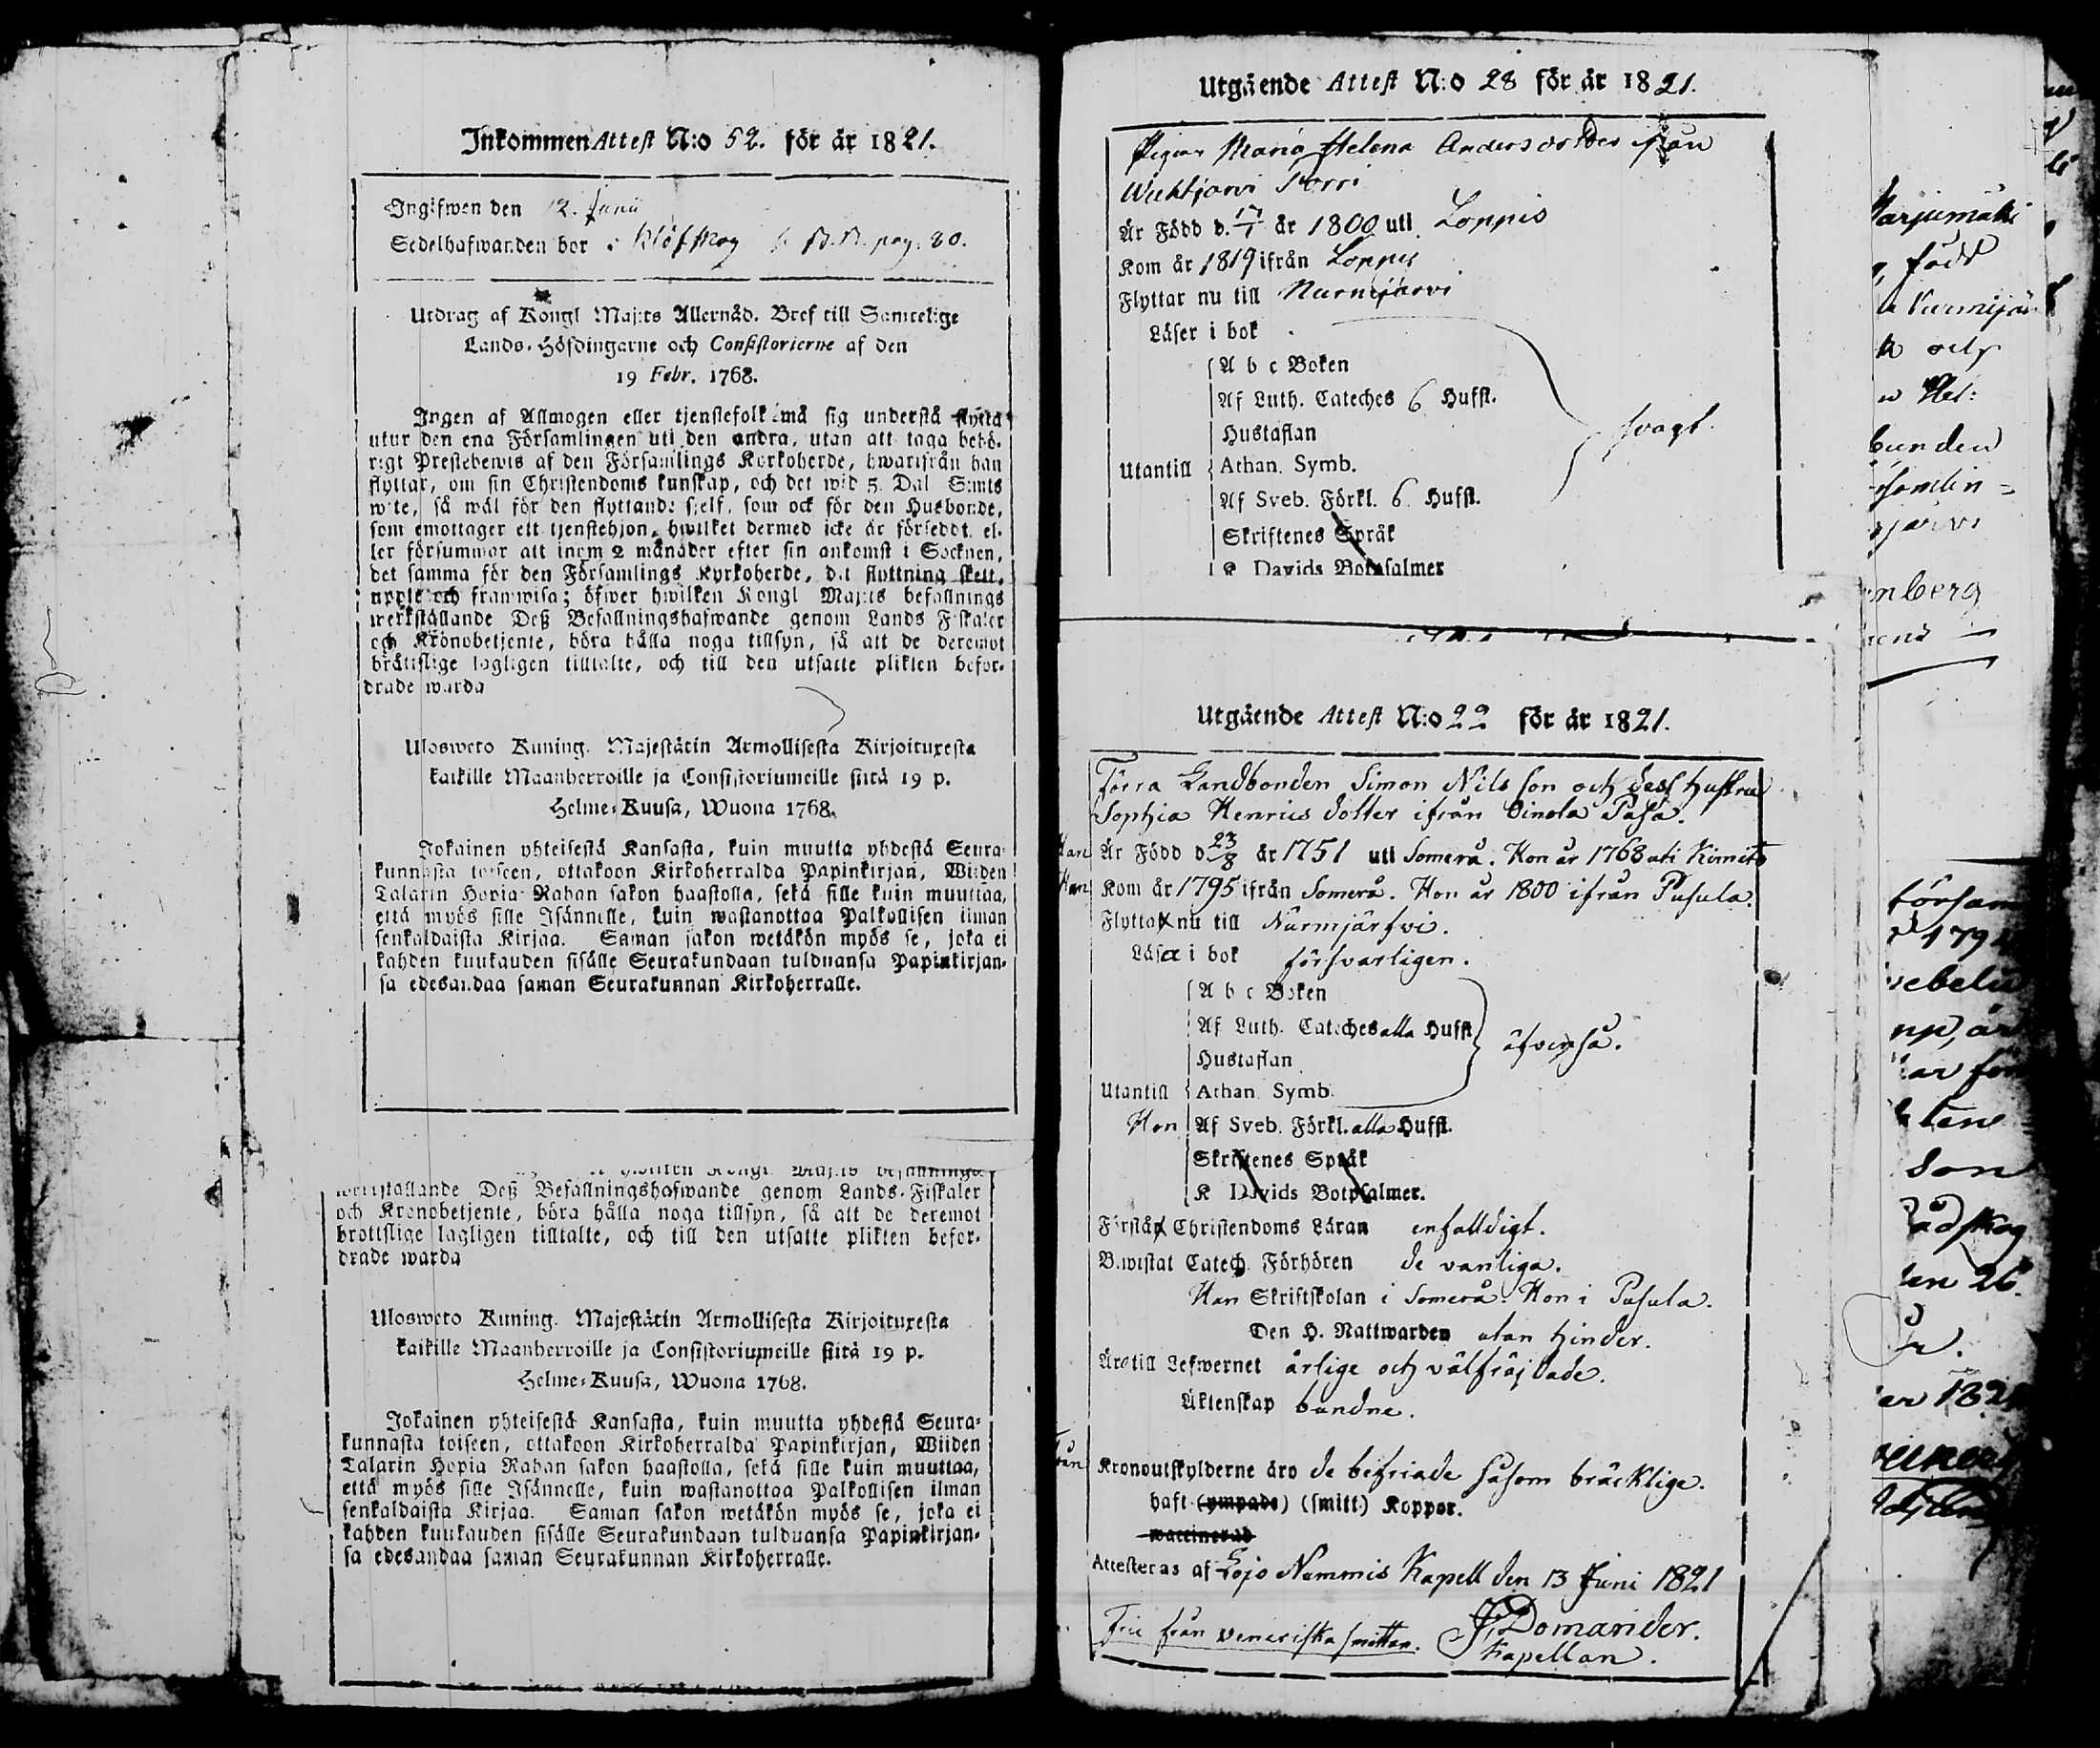 Inkommen Attest N:o 52. för år 1821.
Ingifwen den 12. Junii
Sedelhafwanden bor i Klöfskog B. pag: 80.
Utdrag af Kongl Maj:ts Allernåd. Bref till Samtelige
Lands-Höfdingarne och Consistorierne af den
19 Febr. 1768.
Ingen af Allmogen eller tjenstefolk må sig understå flytta
utur den ena Församlingen uti den andra, utan att taga behö-
rigt Prestebewis af den Församlings Kyrkoherde, hwarifrån han
flyttar, om sin Christendoms kunskap, och det wid 5. Dal S:mts
wite, så wäl för den flyttande sjelf, som ock för den Husbonde,
som emottager ett tjenstehjon, hwilket dermed icke är försedt, el-
ler försummar att inom 2 månader efter sin ankomst i Socknen,
det samma för den Församlings Kyrkoherde, dit flyttning skett,
uppte och framwisa; öfwer hwilken Kongl Maj:ts befallnings
werkställande Deß Befallningshafwande genom Lands Fiskaler
och Kronobetjente, böra hålla noga tillsyn, så att de deremot
bråttslige lagligen tilltalte, och till den utsatte plikten befor-
drade warda
Ulosweto Kuning. Majestätin Armollisesta Kirjoituxesta
kaikille Maanherroille ja Consistoriumeille siitä 19 p.
Helme-Kuusa, Wuona 1768.
Jokainen yhteisestä Kansasta, kuin muutta yhdestä Seura-
kunnasta toiseen, ottakoon Kirkoherralda Papinkirjan, Wiiden
Talarin Hopia Rahan sakon haastolla, sekä sille kuin muuttaa,
että myös sille Isännelle, kuin wastanottaa Palkollisen ilman
senkaldaista Kirjaa. Saman sakon wetäkön myös se, joka ei
kahden kuukauden sisälle Seurakundaan tulduansa Papinkirjan-
sa edesandaa saman Seurakunnan Kirkoherralle.
werkställande Deß Befallningshafwande genom Lands-Fiskaler
och Kronobetjente, böra hålla noga tillsyn, så att de deremot
brottslige lagligen tilltalte, och till den utsatte plikten befor-
drade warda
Ulosweto Kuning. Majestätin Armollisesta Kirjoituxesta
kaikille Maanherroille ja Consistoriumeille siitä 19 p.
Helme-Kuusa, Wuona 1768.
Jokainen yhteisestä Kansasta, kuin muutta yhdestä Seura-
kunnasta toiseen, ottakoon Kirkoherralda Papinkirjan, Wiiden
Talarin Hopia Rahan sakon haastolla, sekä sille kuin muuttaa,
että myös sille Isännelle, kuin wastanottaa Palkollisen ilman
senkaldaista Kirjaa. Saman sakon wetäkön myös se, joka ei
kahden kuukauden sisälle Seurakundaan tulduansa Papinkirjan-
sa edesandaa saman Seurakunnan Kirkoherralle.
Utgående Attest N:o 28 för år 1821.
Pigan Maria Helena Andersdotter från
Wichtjärvi Porri
Är Född d. 17/7 år 1800 uti Loppis
Kom år 1819 ifrån Loppis
Flyttar nu till Nurmijärvi
Läser i bok
A b c Boken
Af Luth. Cateches 6 Hufst.
Hustaflan
Utantill Athan. Symb. svagt.
Af Sveb. Förkl. 6 Hufst.
Skriftenes Språk
K Davids Botpsalmer
Utgående Attest N:o 22 för år 1821.
Förra Landbonden Simon Nilsson och dess Hustru
Sophia Henrics dotter ifrån Oinola Pasa.
Han Är Född d 23/8 år 1751 uti Somerå. Hon år 1768 uti Kimito
Han Kom år 1795 ifrån Somerå. Hon år 1800 ifrån Pusula.
Flytta nu till Nurmjärfvi.
Läsa i bok försvarligen.
A b c Boken
Af Luth. Cateches alla Hufst
Hustaflan äfvenså.
Utantill Athan. Symb.
Hon Af Sveb. Förkl. alla Hufst.
Skriftenes Språk
K Davids Botpsalmer.
Förstå Christendoms Läran enfalldigt.
Bewistat Catech. Förhören de vanliga.
Han Skriftskolan i Somerå. Hon i Pusula.
Den H. Nattwarden utan hinder.
Äro till Lefwernet ärlige och välfräjdade.
Äktenskap bundne.
Från Kronoutskylderne äro de befriade såsom bräcklige.
haft (ympade) (smitt.) Koppor.
waccinerad
Attesteras af Lojo Nummis Kapell den 13 Juni 1821
Frie från veneriska smittan. J. Domander.
Kapellan.
Harjumäki
född
Nurmijär
och
Hel:
bunden
rsamlin=
järvi
nberg
försam
179
son
ådskog
en 26.
er 182